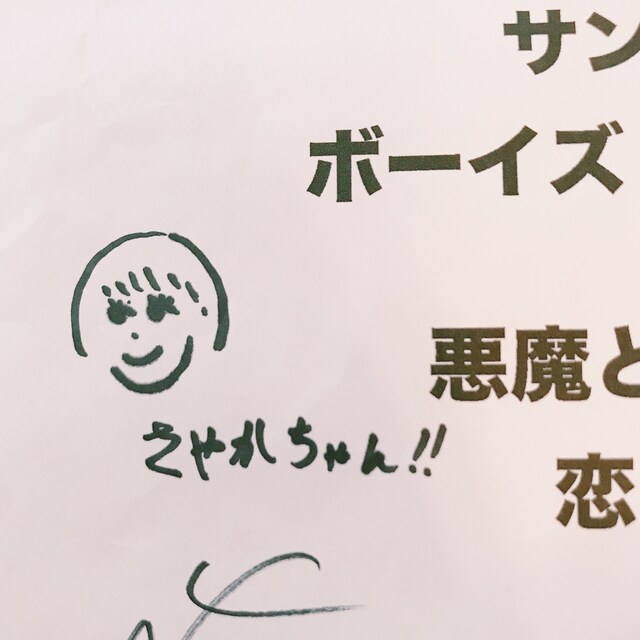 サン
ボーイズ
悪魔と
恋
さやかちゃん!!